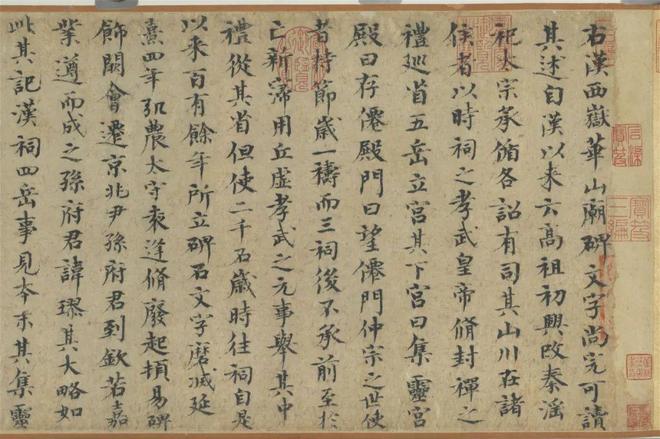 右漢西嶽華山廟碑文字尚完可讀
其述自漢以來云高祖初興改秦淫
祀太宗承循各詔有司其山川在諸
侯者以時祠之孝武皇帝脩封禪之
禮巡省五岳立宮其下宮曰集靈宮
殿曰存僊殿門曰望僊門仲宗之世使
者持節歲一禱而三祠後不承前至於
亡新寖用丘虛孝武之元事舉其中
禮從其省但使二千石歲時往祠自是
以來百有餘年所立碑石文字磨滅延
熹四年弘農太守袁逢脩廢起頓易碑
飾闕會遷京兆尹孫府君到欽若嘉
業遵而成之孫府君諱璆其大略如
此其記漢祠四岳事見本末其集靈